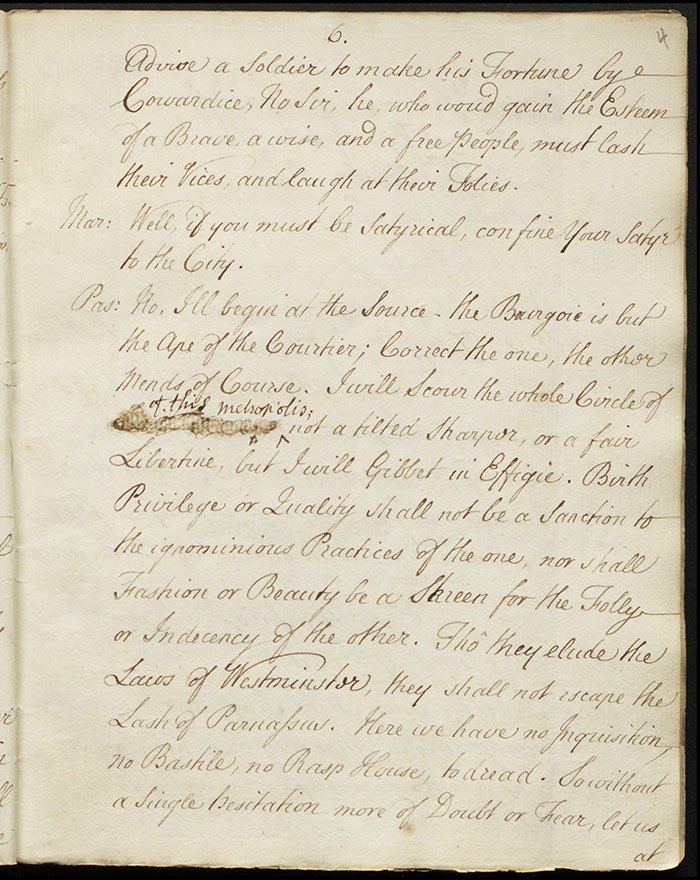 6.
4
Advise a Soldier to make his Fortune by
Cowardice, No Sir, he, who woud gain the Esteem
of a Brave, a wise, and a free People, must lash
their Vices, and laugh at their Folies.
Mar: Well, if you must be Satyrical, confine Your Satyr
to the City.
Pas: No, I'll begin at the Source. the Bourgoie is but
the Ape of the Courtier; Correct the one, the other
Mends of Course. I will Scour the whole Circle of
of this metropolis;
not a titled Sharper, or a fair
Libertine, but I will Gibbet in Effigie. Birth
Privilege or Quality shall not be a Sanction to
the ignominious Practices of the one, nor shall
Fashion or Beauty be a Skreen for the Folly
or Indecency of the other. Tho' they elude the
Laws of Westminster, they shall not escape the
Lash of Parnassus. Here we have no Inquisition,
no Bastile, no Rasp House, to dread. So without
a Single hesitation more of Doubt or Fear, let us
at